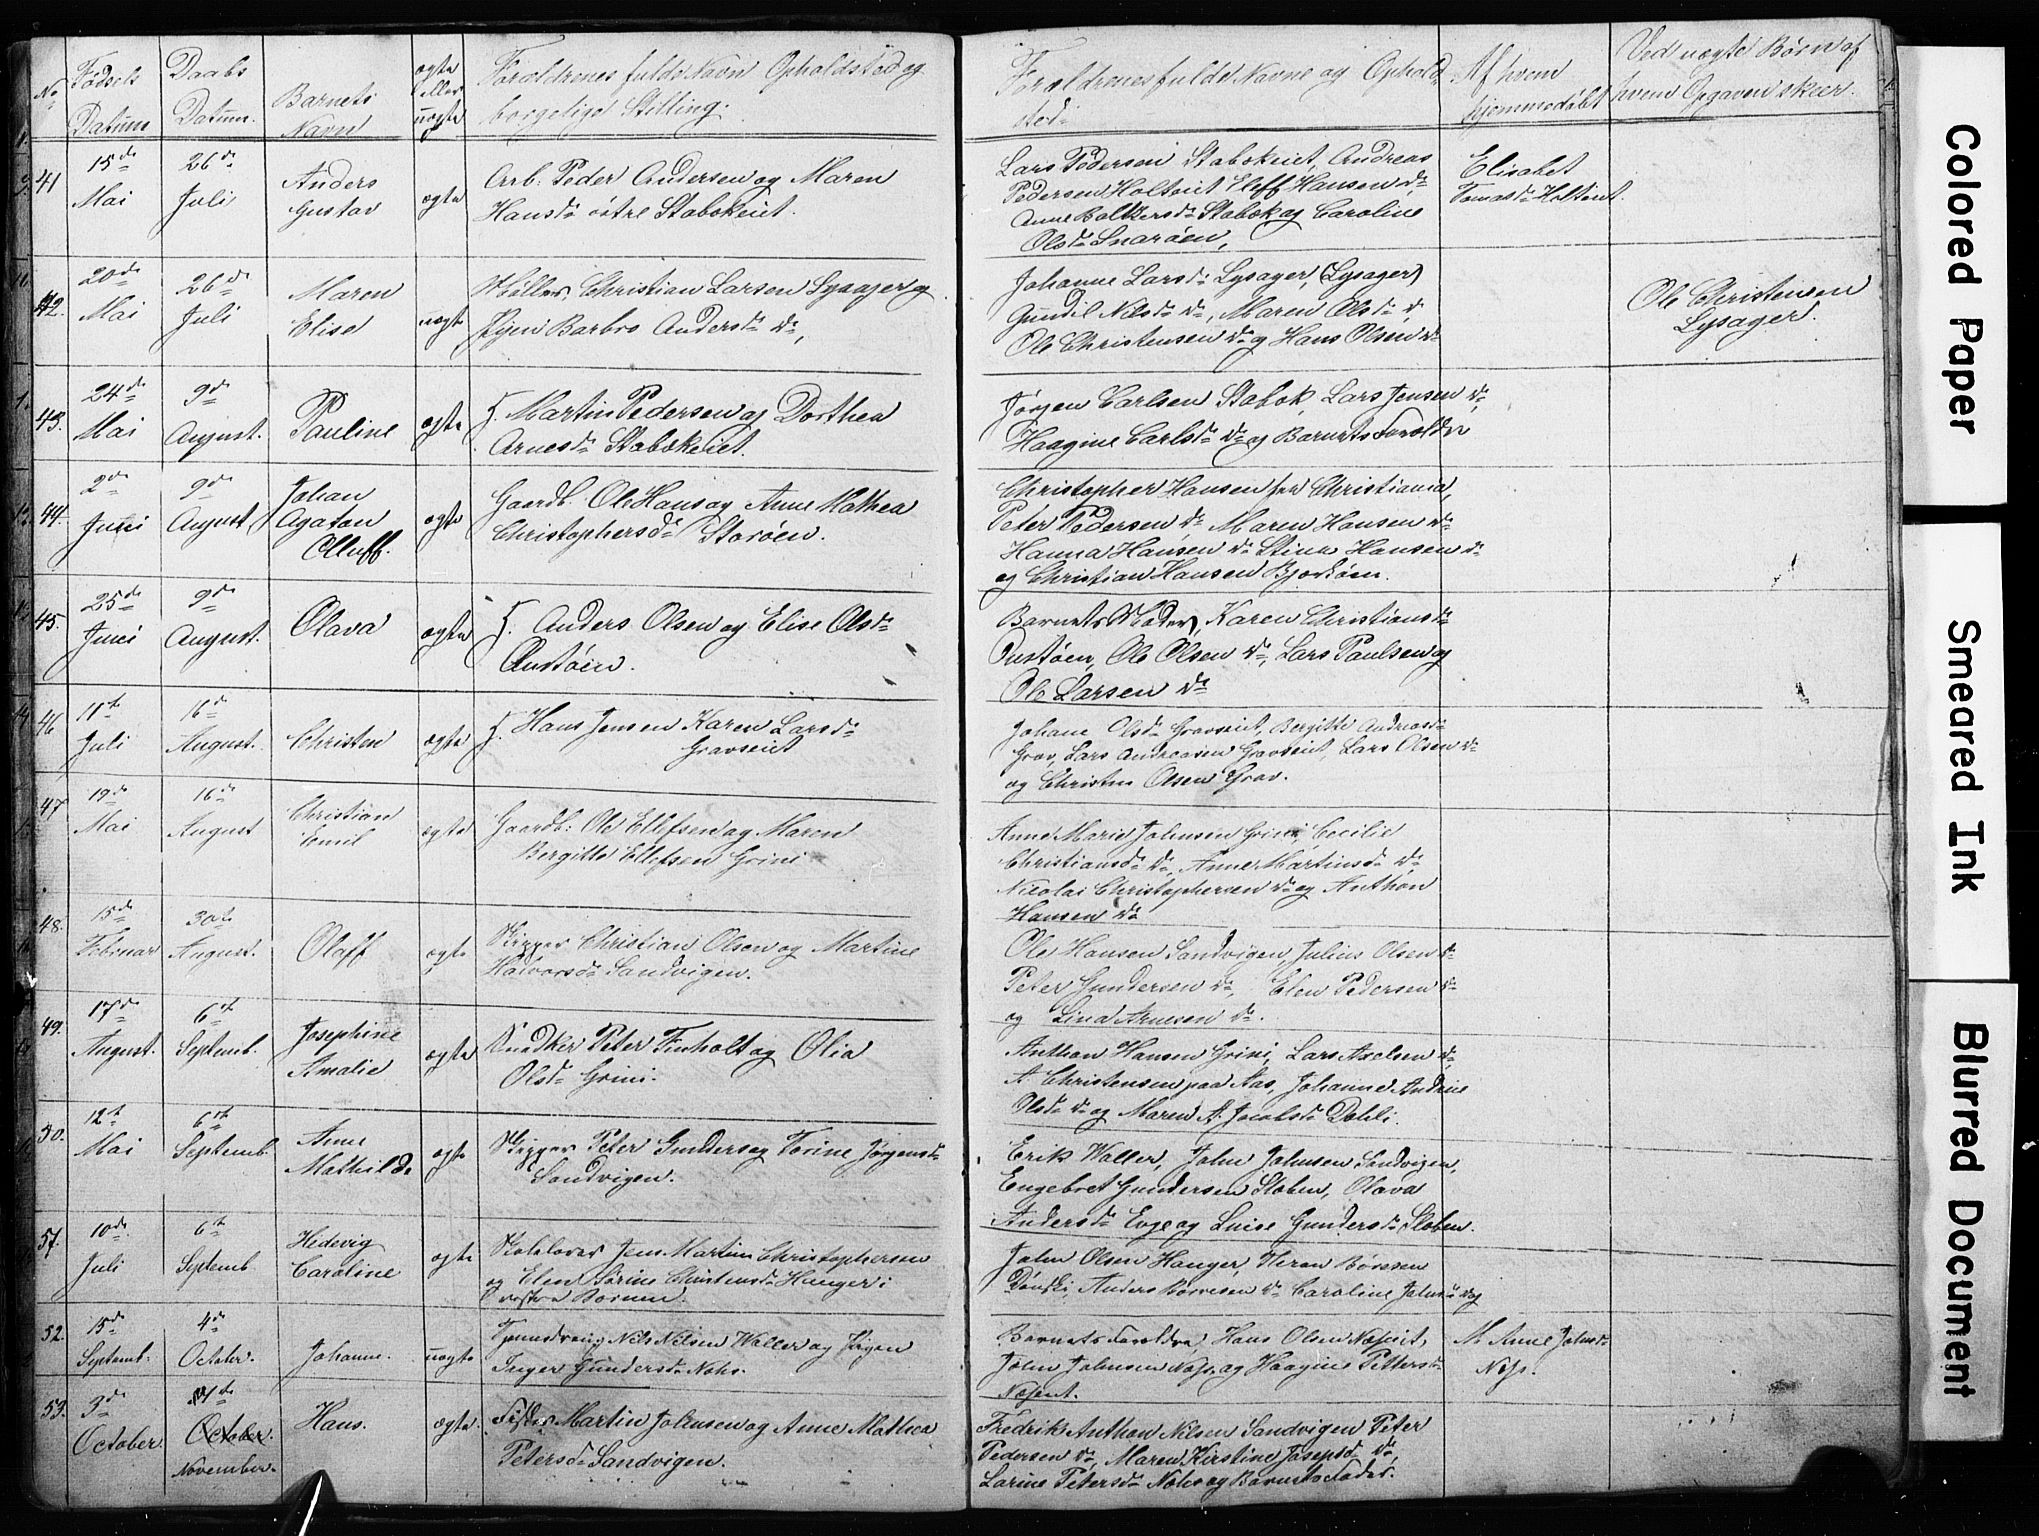 No Fødsels Datum
Daabs Datum.
Barnets Navn
ægte eller uægte
Forældrenes fulde Navn Opholdsted og
borgelige Stilling.
Forældrenes fulde Navne og Ophold-
sted
Af hvem
hjemmedøbt
Ved uægte Børn af
hvem Opgaven skeer.
41 15de Mai
26de Juli
Anders
Gustav
ægte
Arb. Peder Andersen og Maren
Hansdr østre Stabekeiet.
Lars Pedersen Stabekeiet, Andreas
Pedersen Holteiet Eleff Hansen do
Anne Baltzersdr Stabek og Caroline
Olsdr Snarøen,
Elisabet
Tomasdr Holteiet.
42. 20de Mai
26de Juli
Maren
Elise
uægte
Møller, Christian Larsen Lysager og
Pigen Barbro Andersdr do,
Johanne Larsdr Lysager, (Lysager)
Gundil Nilsdr do, Maren Olsdr do
Ole Christensen do og Hans Olsen do
Ole Christensen
Lysager.
43. 24de Mai
9de August.
Pauline
ægte
J. Martin Pedersen og Dorthea
Arnesdr Stabekeiet.
Jørgen Carlsen Stabek, Lars Jensen do,
Haagine Carlsdr do og Barnets Foreldre
44. 2de Juni
9de August
Johan
Agaton
Olluff.
ægte
Gaardb. Ole Hans og Anne Mathea
Christophersdr Storøen.
Christopher Hansen fra Christiania,
Peter Pedersen do Maren Hansen do
Hanna Hansen do Stina Hansen do
og Christian Hansen
45. 25de Juni
9de August.
Olava
ægte
J. Anders Olsen og Elise Olsdr
Oustøen.
Barnets Moder, Karen Christiansdr
Oustøen, Ole Olsen do, Lars Paulsen og
Ole Larsen do
46 11te Juli
16de August.
Christen
ægte
J. Hans Jensen Karen Larsdr
Gravseiet
Johane Olsdr Gravseiet, Bergitte Andreasdr
Grav, Lars Andreasen Gravseiet, Lars Olsen do
og Christen Olsen Grav.
47 19de Mai
16de August
Christian
Emil
ægte
Gaardb: Ole Ellefsen og Maren
Bergitte Ellefsen Grini
Anne Marie Johnsen Grini, Cecilie
Christiansdr do, Anne Martinsdr do
Nicolai Christophersen do og Anthon
Hansen do
48. 15de Februar
30te August.
Oluff
ægte
Skipper Christian Olsen og Martine
Halvorsdr Sandvigen.
Ole Hansen Sandvigen, Julius Olsen do
Peter Gundersen do, Elen Pedersen do
og Lina Arnesen do.
49. 17de August.
6te Septemb.
Josephine
Amalie
ægte
Snedker Peter Finholt og Olia
Olsdr Grini.
Anthon Hansen Grini, Lars Axelsen do,
A. Christensen paa Aas, Johanne Andrine
Olsdr do og Maren A. Jacobsdr Dehli.
50. 12te Mai
6te Septemb.
Anne
Mathilde
ægte
Skipper Peter Gunders og Torine Jørgensdr
Sandvigen.
Erik Waller, John Johnsen Sandvigen,
Engebret Gundersen Sloben, Olava
Andersdr Evje og Luise Gundersdr Sloben.
51. 10de Juli
6te Septemb
Hedevig
Caroline
ægte
Skolelærer Jens Martin Christophersen
og Elen Sørine Christensdr Hanger i
vestre Bærum.
John Olsen Hanger,
Anders do Caroline
52. 15de Septemb.
4de October.
Johanne.
uægte
Tjenestdreng Nils Nilsen Waller og Pigen
Inger Gundersdr Næhs.
Barnets Forældre, Hans Olsen Næseit,
John Johnsen Næss, og Haagine Pettersdr
Næseit.
M. Anne Johnsdr
Næss.
53. 3de October.
1de
October.
November.
Hans.
ægte.
Fisker Martin Johnsen og Anne Mathea
Petersdr Sandvigen.
Fredrik Anthon Nilsen Sandvigen Peter
Pedersen do, Maren Kirstine Josepsdr do,
Larine Petersdr Næhs og Barnets Fader.
Colored Paper
Smeared Ink
Blurred Document